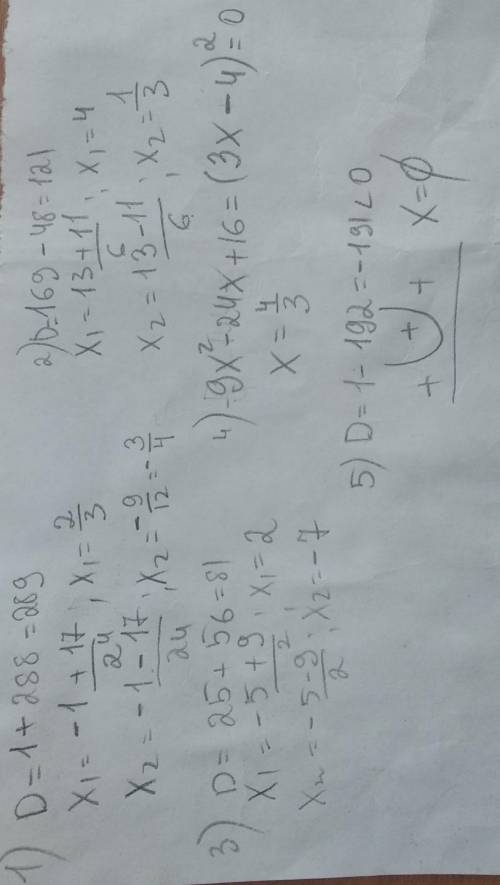 1) D = 1 + 288 = 289
x₁ = (-1 + 17)/24 ; x₁ = 2/3
x₂ = (-1 - 17)/24 ; x₂ = -9/12 = -3/4
2) D = 169 - 48 = 121
x₁ = (13 + 11)/6 ; x₁ = 4
x₂ = (13 - 11)/6 ; x₂ = 1/3
3) D = 25 + 56 = 81
x₁ = (-5 + 9)/2 ; x₁ = 2
x₂ = (-5 - 9)/2 ; x₂ = -7
4) 9x² - 24x + 16 = (3x - 4)² = 0
x = 4/3
5) D = 1 - 192 = -191 < 0
+ + +
x = ∅